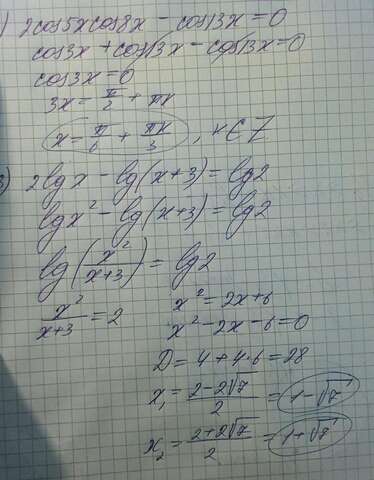 ) 2cos5xcos8x - cos13x = 0
cos3x + cos13x - cos13x = 0
cos3x = 0
3x = π/2 + πk
x = π/6 + πk/3, k ∈ Z
3) 2lgx - lg(x+3) = lg2
lgx² - lg(x+3) = lg2
lg(x²/(x+3)) = lg2
x²/(x+3) = 2
x² = 2x+6
x² - 2x - 6 = 0
D = 4 + 4·6 = 28
x₁ = (2-2√7)/2 = 1-√7
x₂ = (2+2√7)/2 = 1+√7